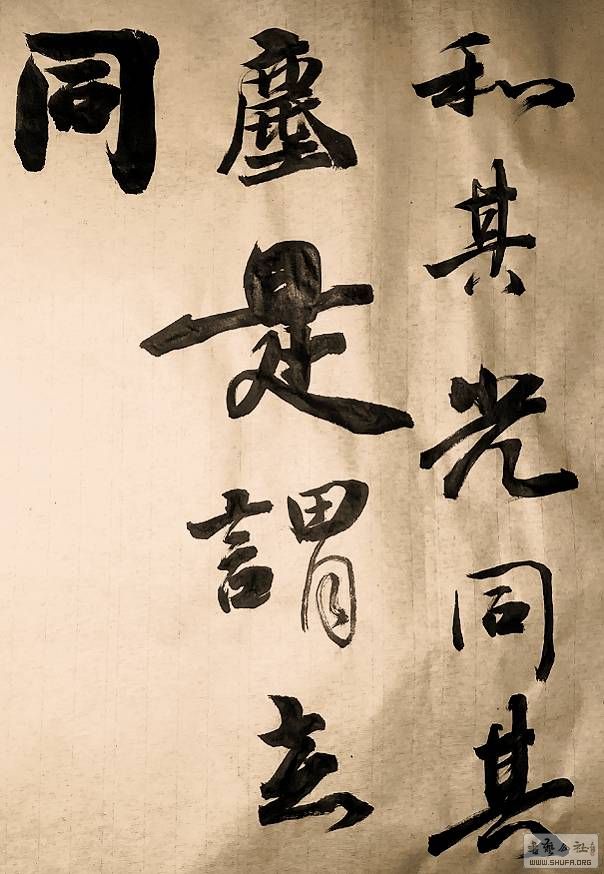 和其光同其
塵是謂玄
同
書藝公社
WWW.SHUFA.ORG